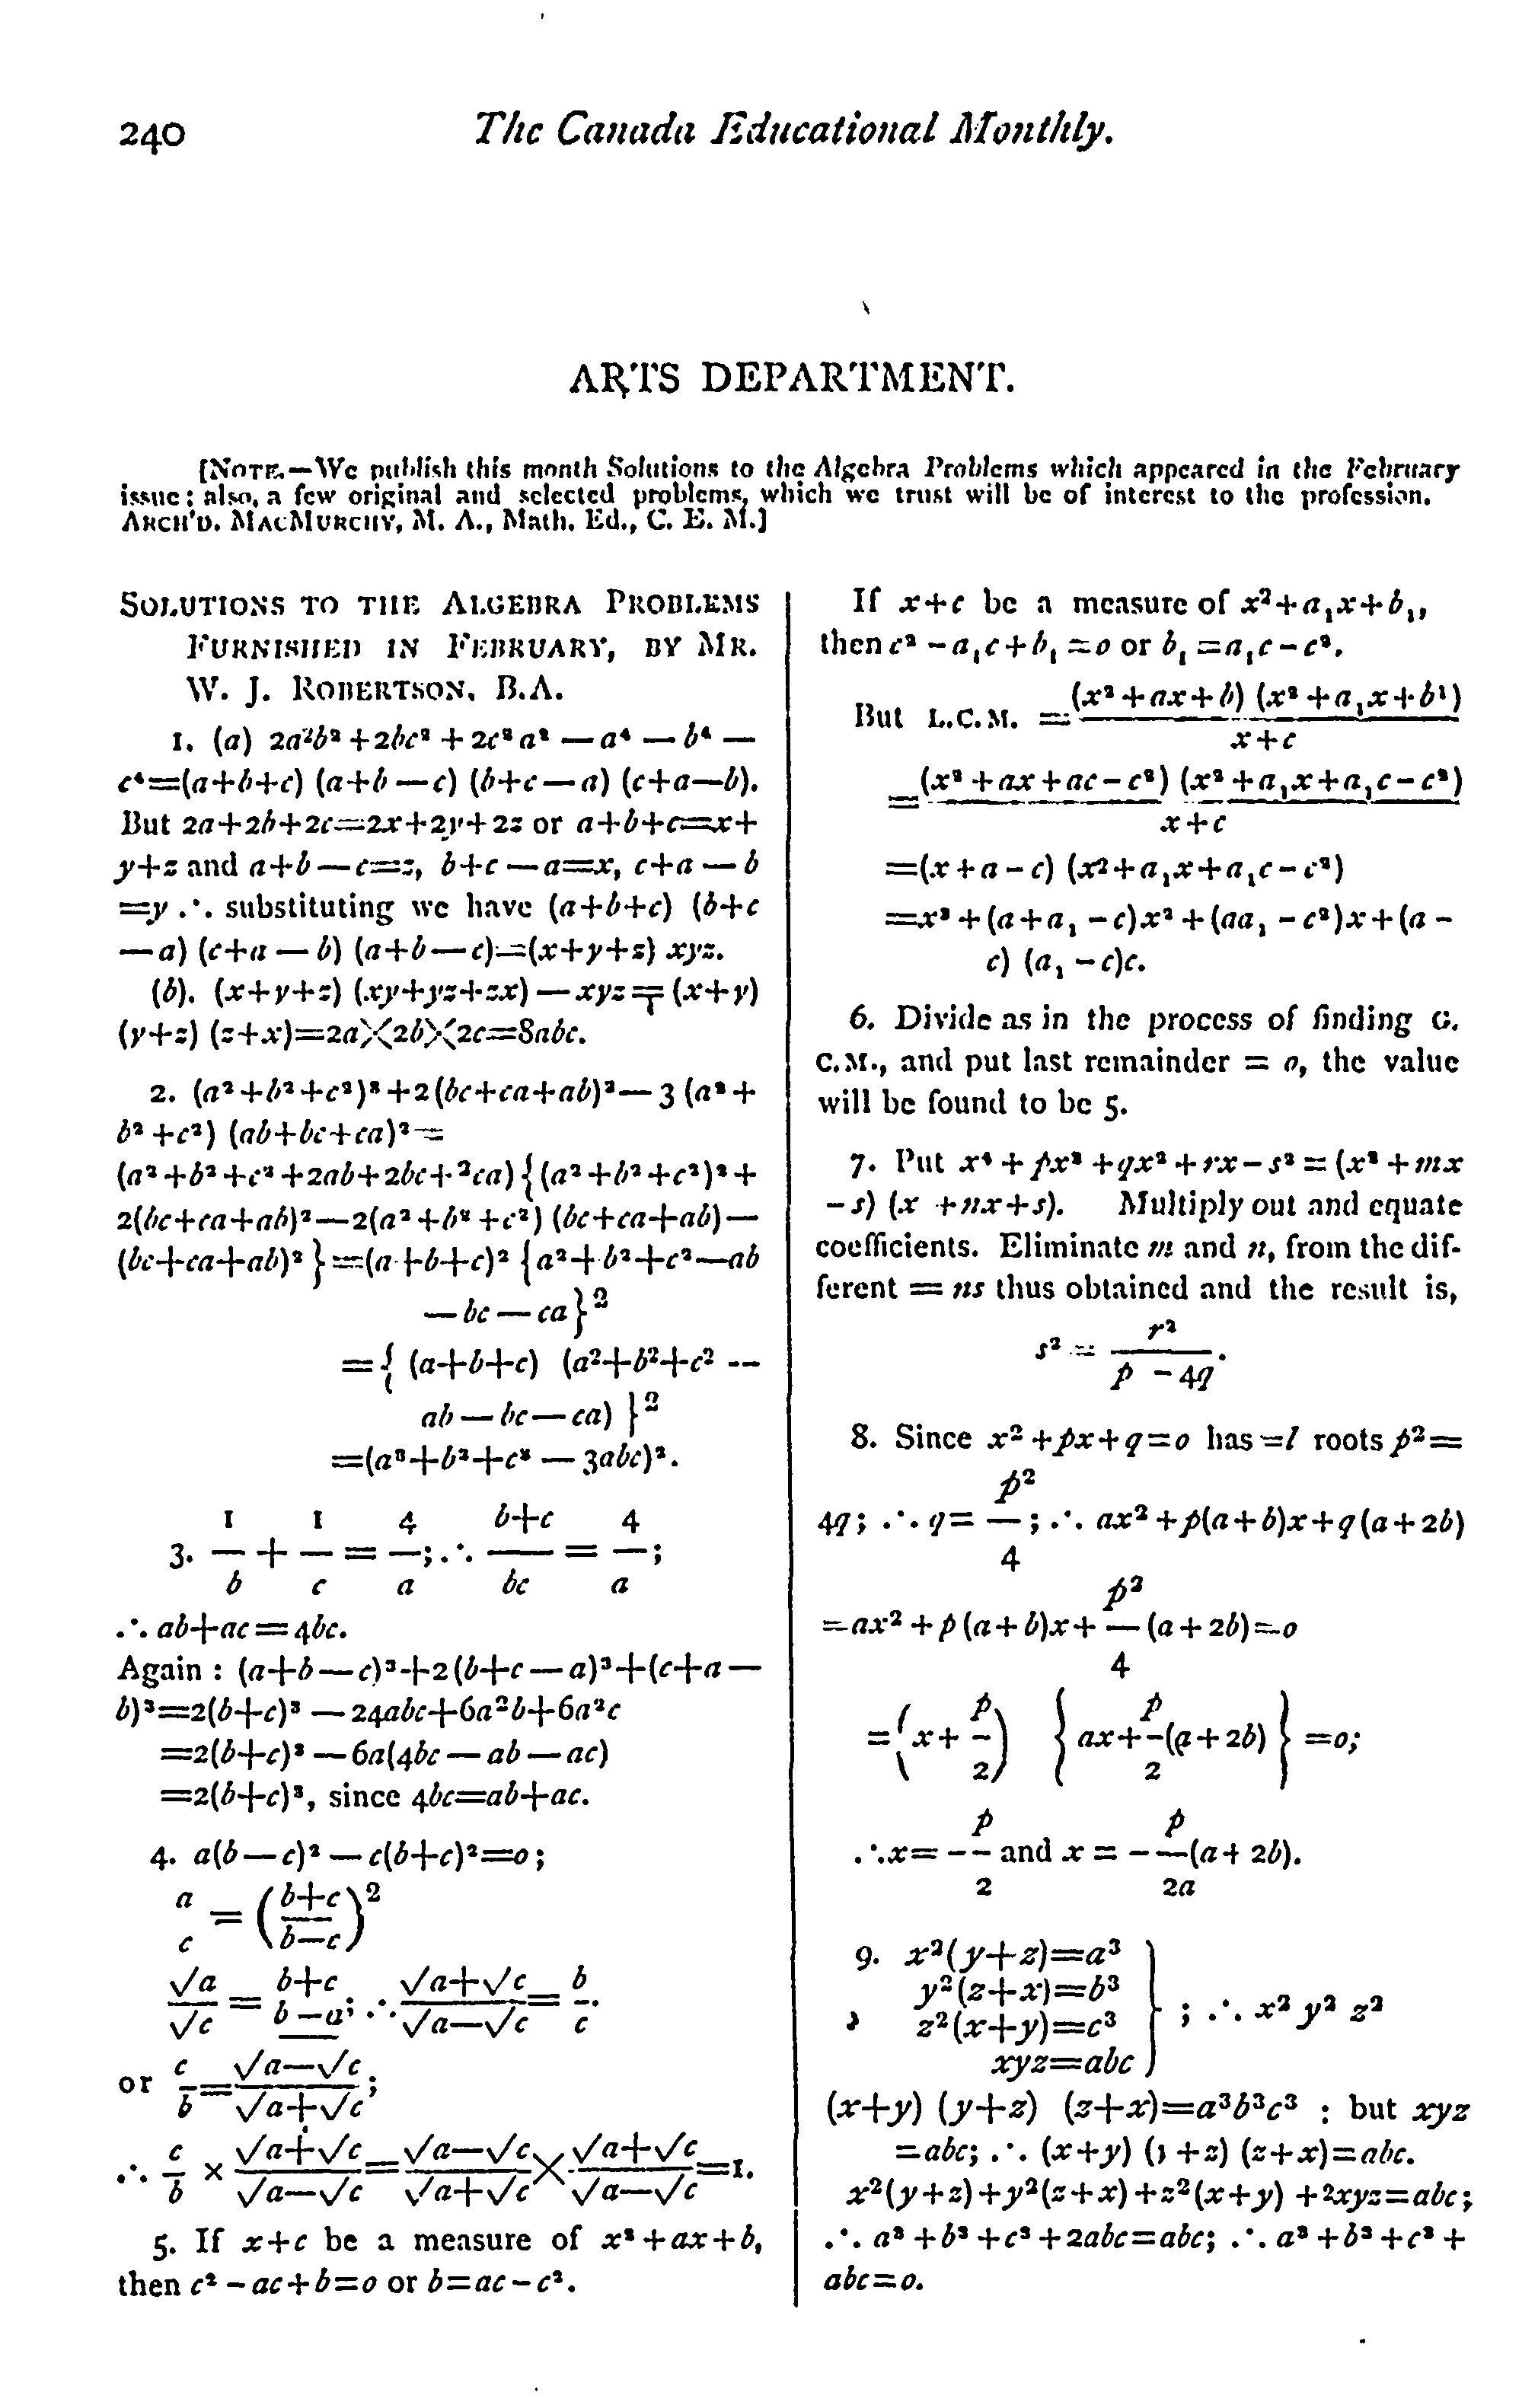 240
The Canada Educational Monthly.
ARTS DEPARTMENT.
[NOTE.—We publish this month Solutions to the Algebra Problems which appeared in the February
issue; also, a few original and selected problems, which we trust will be of interest to the profession.
ARCH'D. MACMURCHY, M. A., Math. Ed., C. E. M.]
SOLUTIONS TO THE ALGEBRA PROBLEMS
FURNISHED IN FEBRUARY, BY MR.
W. J. ROBERTSON, B.A.
1. (a) 2a²b² + 2bc² + 2c²a² — a⁴ — b⁴ —
c⁴=(a+b+c) (a+b — c) (b+c — a) (c+a—b).
But 2a+2b+2c=2x+2y+2z or a+b+c=x+
y+z and a+b — c=z, b+c — a=x, c+a — b
=y ∴ substituting we have (a+b+c) (b+c
— a) (c+a — b) (a+b — c)=(x+y+z) xyz.
(b). (x+y+z) (xy+yz+zx) — xyz = (x+y)
(y+z) (z+x)=2a×2b×2c=8abc.
2. (a²+b²+c²)³+2(bc+ca+ab)³— 3 (a²+
b²+c²) (ab+bc+ca)²=
(a²+b²+c²+2ab+2bc+2ca) { (a²+b²+c²)²+
2(bc+ca+ab)²—2(a²+b²+c²) (bc+ca+ab)—
(bc+ca+ab)² }=(a+b+c)² { a²+b²+c²—ab
— bc — ca }²
= { (a+b+c) (a²+b²+c² —
ab — bc — ca) }²
=(a³+b³+c³ — 3abc)².
3. 1/b + 1/c = 4/a; ∴ (b+c)/bc = 4/a;
∴ ab+ac = 4bc.
Again : (a+b—c)³+2(b+c — a)³+(c+a —
b)³=2(b+c)³ — 24abc+6a²b+6a²c
=2(b+c)³ — 6a(4bc — ab — ac)
=2(b+c)³, since 4bc=ab+ac.
4. a(b — c)² — c(b+c)²=0;
a/c = ((b+c)/(b—c))²
√a/√c = (b+c)/(b—a); ∴ (√a+√c)/(√a—√c) = b/c.
or c/b = (√a—√c)/(√a+√c);
∴ c/b × (√a+√c)/(√a—√c) = (√a—√c)/(√a+√c) × (√a+√c)/(√a—√c) =1.
5. If x+c be a measure of x²+ax+b,
then c² – ac+b=0 or b=ac – c².
If x+c be a measure of x²+a₁x+b₁,
then c² – a₁c+b₁ =0 or b₁ =a₁c – c².
But L.C.M. = (x²+ax+b) (x²+a₁x+b¹)/(x+c)
= (x²+ax+ac – c²) (x²+a₁x+a₁c – c²)/(x+c)
=(x+a – c) (x²+a₁x+a₁c – c²)
=x³+(a+a₁ – c)x²+(aa₁ – c²)x+(a –
c) (a₁ – c)c.
6. Divide as in the process of finding G.
C.M., and put last remainder = 0, the value
will be found to be 5.
7. Put x⁴+px³+qx²+rx – s² = (x²+mx
– s) (x +nx+s). Multiply out and equate
coefficients. Eliminate m and n, from the dif-
ferent = ns thus obtained and the result is,
s² = r²/(p – 4q).
8. Since x²+px+q=0 has =l roots p²=
4q; ∴ q= p²/4; ∴ ax²+p(a+b)x+q(a+2b)
=ax²+p(a+b)x+ p²/4 (a+2b)=0
= (x+ p/2) { ax+ p/2 (a+2b) } =0;
∴ x= – p/2 and x = – p/2a (a+ 2b).
9. x²(y+z)=a³
y²(z+x)=b³
z²(x+y)=c³
xyz=abc } ; ∴ x² y² z²
(x+y) (y+z) (z+x)=a³b³c³ : but xyz
=abc; ∴ (x+y) ( +z) (z+x)=abc.
x²(y+z)+y²(z+x)+z²(x+y) +2xyz=abc;
∴ a³+b³+c³+2abc=abc; ∴ a³+b³+c³+
abc=0.